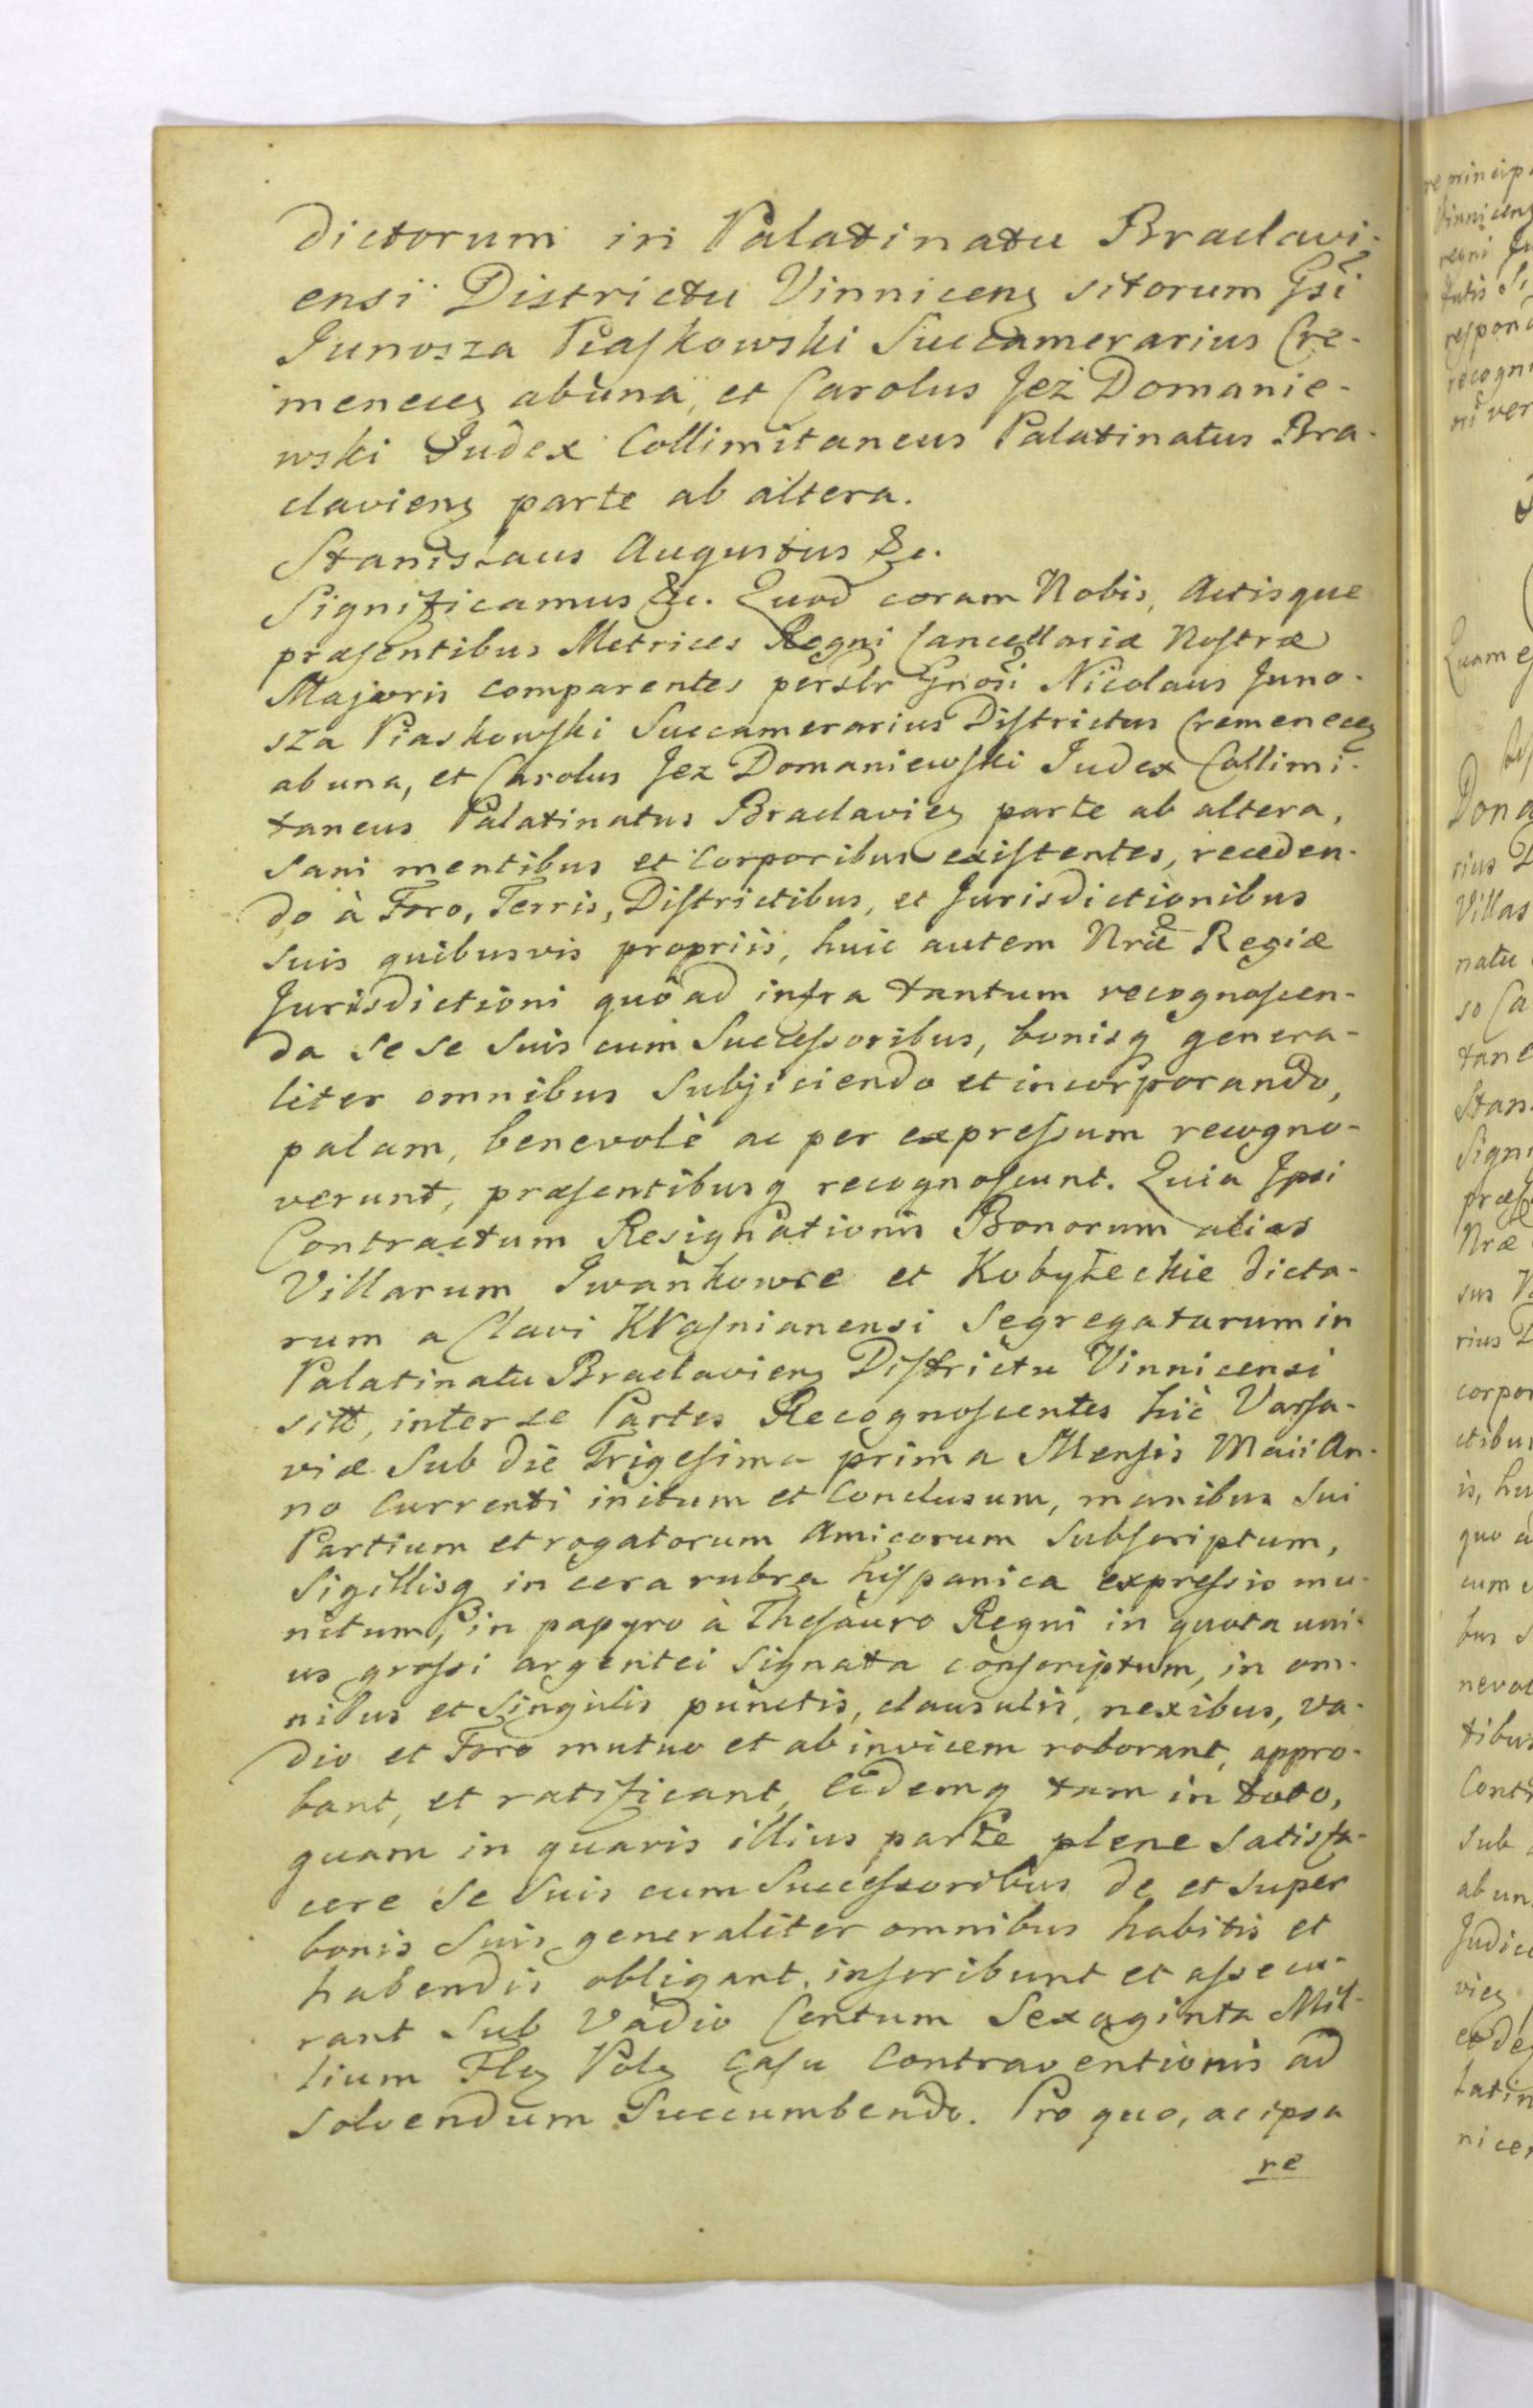 dictorum in Palatinatu Braclavi-
ensi Districtu Vinnicenę sitorum Gsi
Junosza Piaſkowski Succamerarius Cre-
menecę abuna, et Carolus Jeż Domanie-
wski Judex Collimitaneus Palatinatus Bra-
clavienę parte ab altera.
Stanislaus Augustus &c.
Significamus &c. Quod coram Nobis, Actisque
præſentibus Metrices Regni Cancellariæ Noſtræ
Majoris comparentes perslr Gnosi Nicolaus Juno-
sza Piaskowſki Succamerarius Diſtrictus Cremenecę
ab una, et Carolus Jez Domaniewſki Judex Collimi-
taneus Palatinatus Braclavieę parte ab altera,
Sani mentibus et Corporibus exiſtentes, receden-
do à Foro, Terris, Diſtrictibus, et Jurisdictionibus
suis quibusvis propriis, huic autem Nræ Regiæ
Jurisdictioni quo ad infra tantum recognoſcen-
da se se Suis cum Succeſsoribus, bonisq genera-
liter omnibus Subjiciendo et incorporando,
palam, benevolè ac per expreſsum recogno-
verunt, præſentibusq recognoſcunt. Quia Ipsi
Contractum Resignationis Bonorum alias
Villarum Iwankowce et Kobyłeckie dicta-
rum a Clavi Kraſnianensi Segregatarum in
Palatinatu Braclavienę Diſtrictu Vinnicensi
sitt, inter se Partes Recognoſcentes hic Varſa-
viæ Sub die Trigeſima prima Menſis Maii An-
no Currenti initum et Conclusum, manibus Sui
Partium et rogatorum Amicorum Subſcriptum,
Sigillisq in cera rubra hiſpanica expreſsis mu-
nitum, in papyro à Theſauro Regni in quota uni-
us groſsi argentei Signata conſcriptum, in om-
nibus et Singulis punctis, clausulis, nexibus, va-
dio et Foro mutuo et ab invicem roborant, appro-
bant, et ratificant, Eidemq tam in toto,
quam in quavis illius parte plene Satisfa-
cere Se Suis cum Succeſsoribus de et super
bonis Suis generaliter omnibus habitis et
habendis obligant, inſcribunt et aſsecu-
rant Sub Vadio Centum Sexaginta Mil-
lium Flę Polę Caſu Contraventionis ad
solvendum Succumbendo. Pro quo, ac ipsa
re